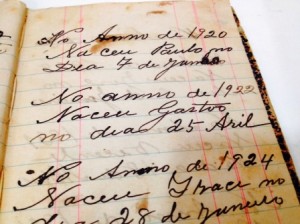 No Anno de 1920
Naceu Paulo no
Dia 7 de Junho
No anno de 1922
Naceu Gastro
no dia 25 Aril
No Anno de 1924
Naceu Iraci no
dia 28 de Janeiro